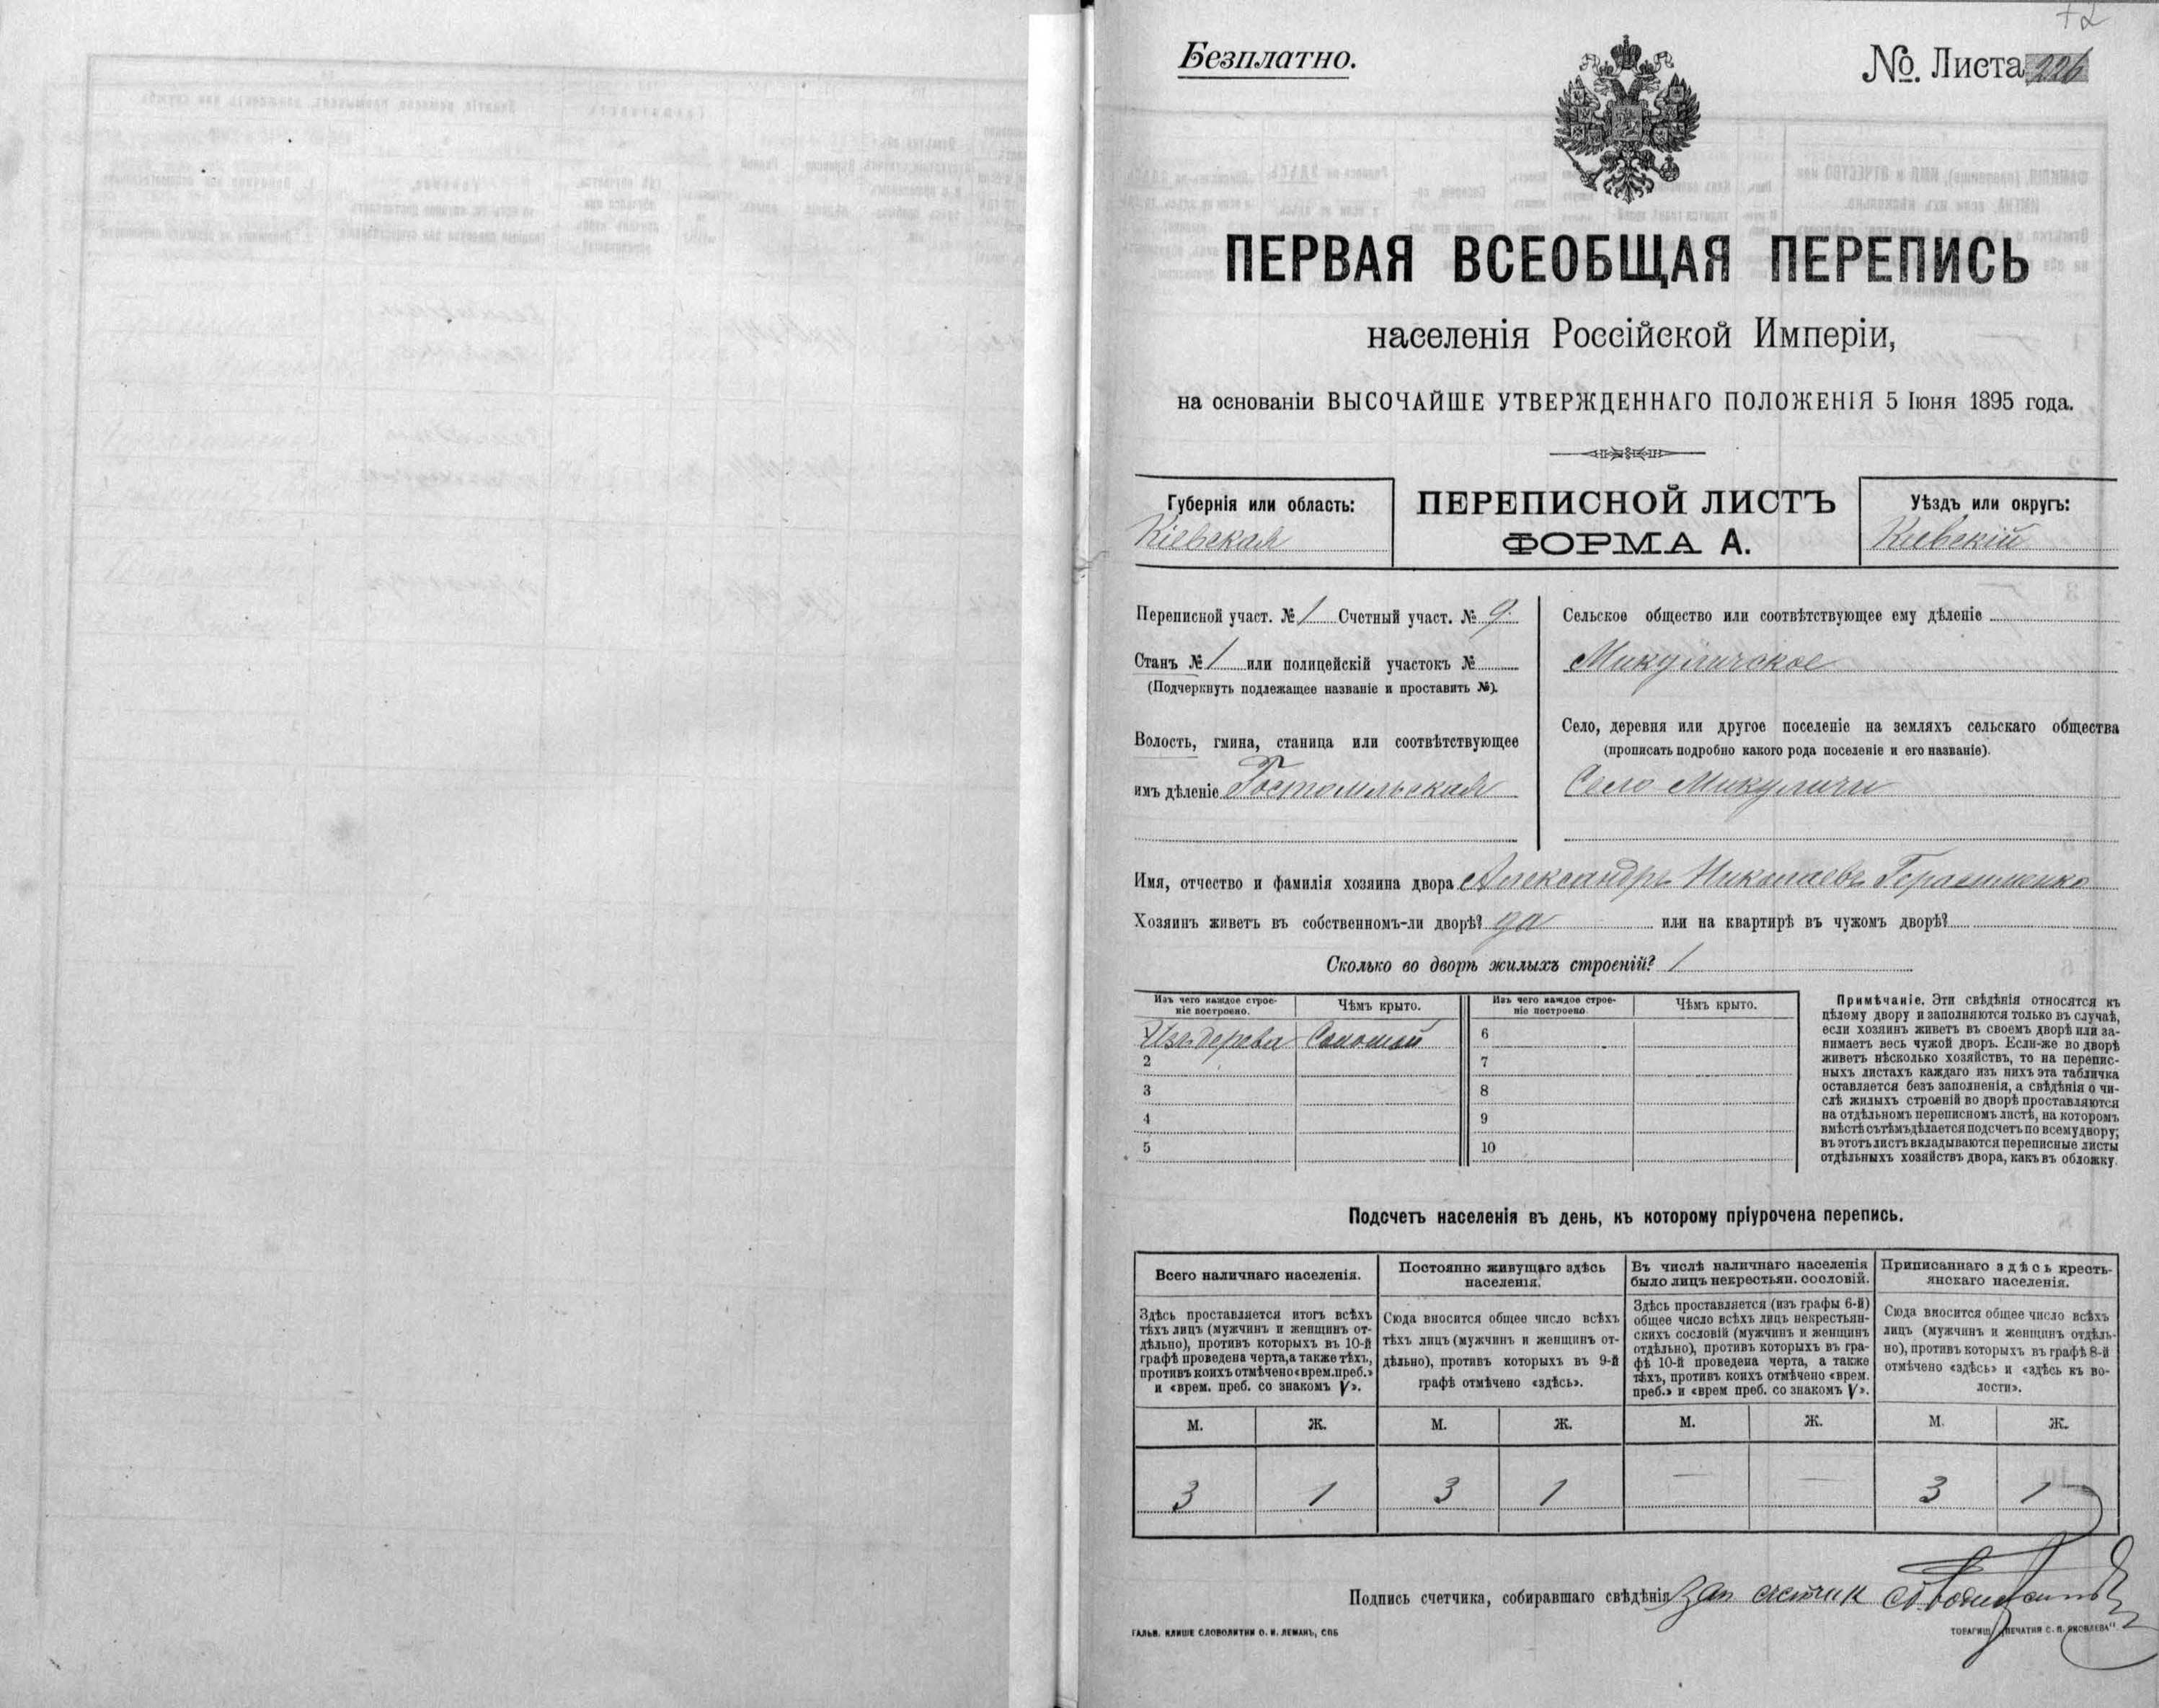 Безплатно.
№. Листа 226
ПЕРВАЯ ВСЕОБЩАЯ ПЕРЕПИСЬ
населенія Россійской Имперіи,
на основаніи ВЫСОЧАЙШЕ УТВЕРЖДЕННАГО ПОЛОЖЕНІЯ 5 Іюня 1895 года.
Губернія или область:
Кіевская
ПЕРЕПИСНОЙ ЛИСТЪ
ФОРМА А.
Уѣздъ или округъ:
Кіевскій
Переписной участ. № 1 Счетный участ. № 9.
Станъ № 1 или полицейскій участокъ №
(Подчеркнуть подлежащее названіе и проставить №).
Волость, гмина, станица или соотвѣтствующее
имъ дѣленіе Гостомльская
Сельское общество или соотвѣтствующее ему дѣленіе
Микуличское
Село, деревня или другое поселеніе на земляхъ сельскаго общества
(прописать подробно какого рода поселеніе и его названіе).
Село Микуличи
Имя, отчество и фамилія хозяина двора Александръ Николаевъ Герасименко
Хозяинъ живетъ въ собственномъ-ли дворѣ? да или на квартирѣ въ чужомъ дворѣ?
Сколько во дворѣ жилыхъ строеній? 1
Изъ чего каждое строе-
ніе построено.
Чѣмъ крыто.
Изъ чего каждое строе-
ніе построено
Чѣмъ крыто.
Изъ дерева Соломой
6
2
7
3
8
4
9
5
10
Примѣчаніе. Эти свѣдѣнія относятся къ
цѣлому двору и заполняются только въ случаѣ,
если хозяинъ живетъ въ своемъ дворѣ или за-
нимаетъ весь чужой дворъ. Если-же во дворѣ
живетъ нѣсколько хозяйствъ, то на перепис-
ныхъ листахъ каждаго изъ нихъ эта табличка
оставляется безъ заполненія, а свѣдѣнія о чи-
слѣ жилыхъ строеній во дворѣ проставляются
на отдѣльномъ переписномъ листѣ, на которомъ
вмѣстѣ съ тѣмъ дѣлается подсчетъ по всему двору;
въ этотъ листъ вкладываются переписные листы
отдѣльныхъ хозяйствъ двора, какъ въ обложку.
Подсчетъ населенія въ день, къ которому пріурочена перепись.
Всего наличнаго населенія.
Здѣсь проставляется итогъ всѣхъ
тѣхъ лицъ (мужчинъ и женщинъ от-
дѣльно), противъ которыхъ въ 10-й
графѣ проведена черта, а также тѣхъ,
противъ коихъ отмѣчено «врем. преб.»
и «врем. преб. со знакомъ V».
Постоянно живущаго здѣсь
населенія.
Сюда вносится общее число всѣхъ
тѣхъ лицъ (мужчинъ и женщинъ от-
дѣльно), противъ которыхъ въ 9-й
графѣ отмѣчено «здѣсь».
Въ числѣ наличнаго населенія
было лицъ некрестьян. сословій.
Здѣсь проставляется (изъ графы 6-й)
общее число всѣхъ лицъ некрестьян-
скихъ сословій (мужчинъ и женщинъ
отдѣльно), противъ которыхъ въ гра-
фѣ 10-й проведена черта, а также
тѣхъ, противъ коихъ отмѣчено «врем.
преб.» и «врем преб. со знакомъ V».
Приписаннаго здѣсь кресть-
янскаго населенія.
Сюда вносится общее число всѣхъ
лицъ (мужчинъ и женщинъ отдѣль-
но), противъ которыхъ въ графѣ 8-й
отмѣчено «здѣсь» и «здѣсь къ во-
лости».
М. Ж. М. Ж. М. Ж. М. Ж.
3 1 3 1 — — 3 1
Подпись счетчика, собиравшаго свѣдѣнія Зап счетчик
ГАЛЬВ. КЛИШЕ СЛОВОЛИТНИ О. И. ЛЕМАНЪ, СПБ
ТОВАРИЩ. „ПЕЧАТНЯ С. П. ЯКОВЛЕВА"